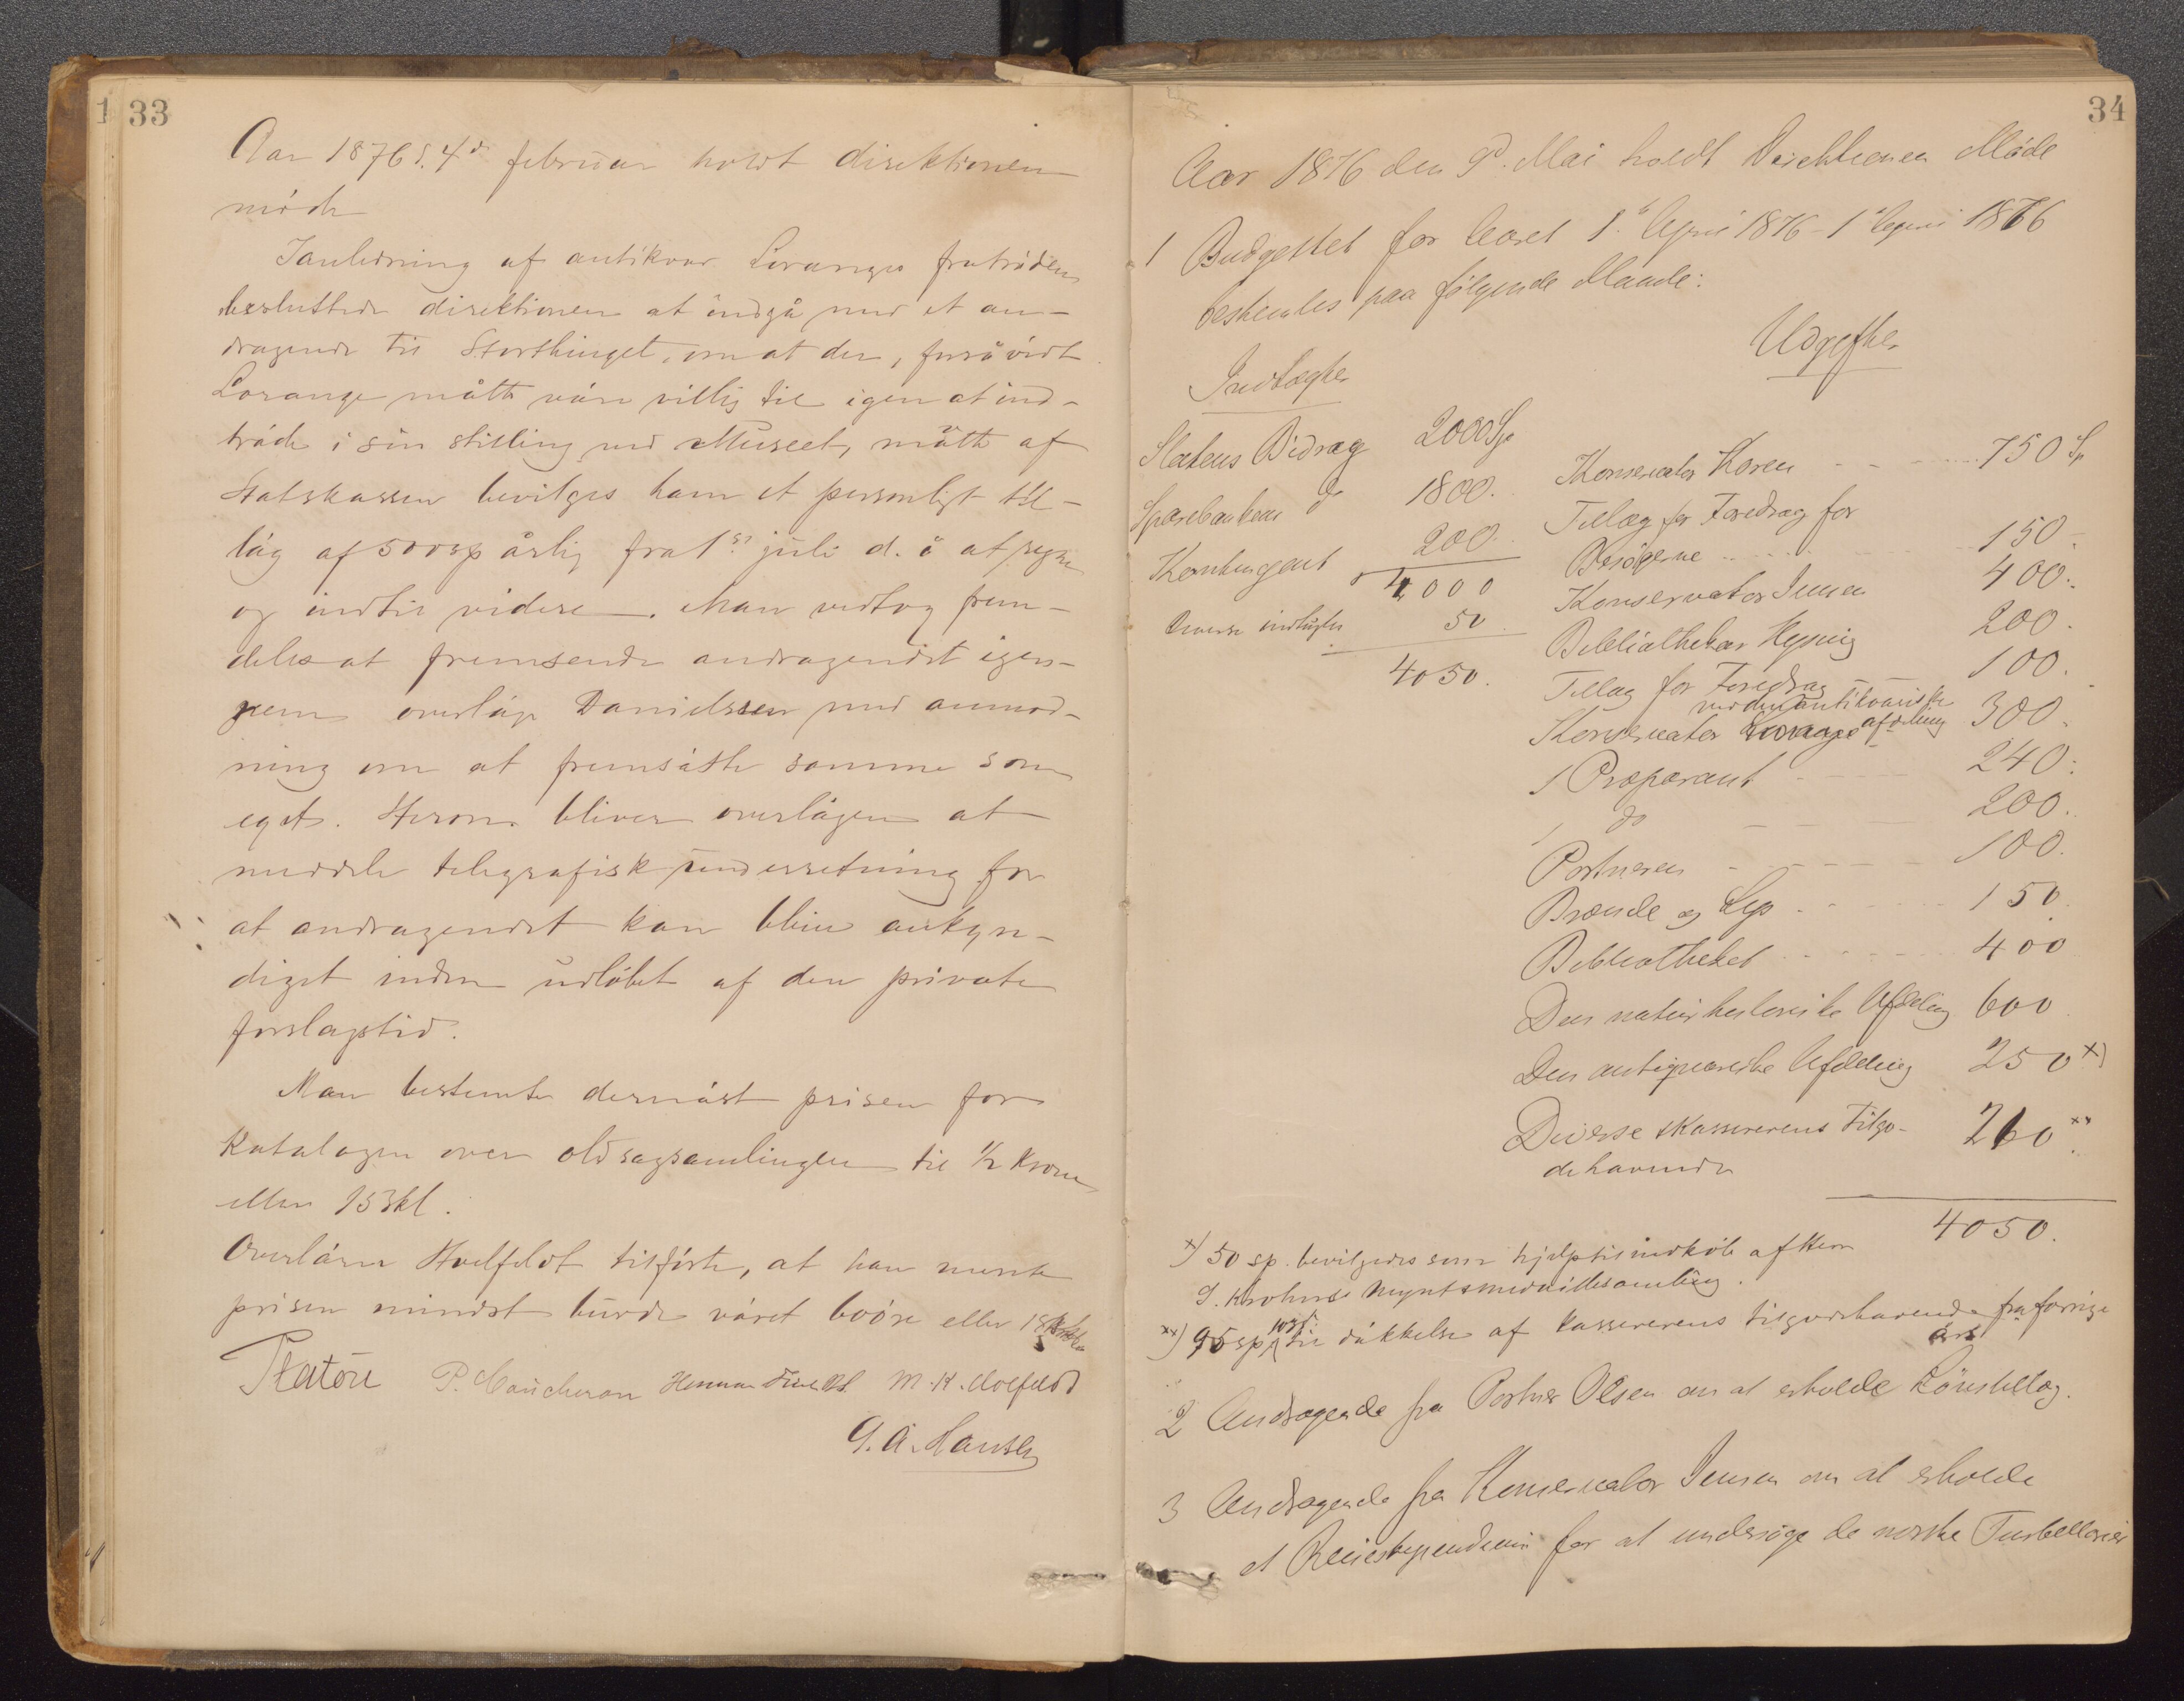 33
Aar 1876 d. 4de februar holdt direktionen
møde
I anledning af antikvar Loranges fratræden
besluttede direktionen at indgå med et an-
dragende til Storthinget, om at der, forsåvidt
Lorange måtte være villig til igen at ind-
træde i sin stilling ved Museet, måtte af
Statskassen bevilges ham et personligt til-
læg af 500 sp årlig fra 1ste juli d. å at regne
og indtil videre. Man vedtog frem-
deles at fremsende andragendet igen-
nem overlæge Danielssen med anmod-
ning om at fremsætte samme som
eget. Herom bliver overlægen at
meddele telegrafisk underretning for
at andragendet kan blive ankyn-
diget inden udløbet af den private
forslagstid.
Man bestemte dernæst prisen for
katalogen over oldsagsamlingen til 1/2 krone
eller 15 skl.
Overlærer Hvelfeldt tilførte, at han mente
prisen mindst burde været 60 øre eller 18
Platou P. M. H.
G. A. Hansen
34
Aar 1876 den 9d. Mai holdt Direktionen Møde
1 Budgettet for Aaret 1ste April 1876 - 1ste April 1876
bestemtes paa følgende Maade:
Indtægter
Udgifter
Statens Bidrag 2000 Sp
Sparebankens do 1800.
Kontingent 200.
4000
Diverse indtægter 50.
4050.
Konservator Koren 750 Sp
Tillæg for Foredrag for
Besøgerne 150
Konservator Jensen 400.
Bibliothekar 200.
Tillæg for Foredrag 100.
ved den antikvariske
Konservator Lorange afdeling 300.
1 Præparant 240.
1 do 200.
Portneren 100.
Brænde og Lys 150.
Bibliotheket 400
Den naturhistoriske Afdeling 600
Den antiqvariske Afdeling 250 x)
Diverse & kassererens Tilgo-
dehavende 210 xx
4050.
x) 50 sp. bevilgedes som hjælp til indkøb af Herr
Krohns mynt & medaillesamling.
xx) 95 sp til dækkelse af kassererens tilgodehavende fra forrige
års
2 Andragende fra Portner Olsen om at erholde Lønstillæg.
3 Andragende fra Konservator Jensen om at erholde
et Reisestipendium for at undersøge de norske Turbellarier